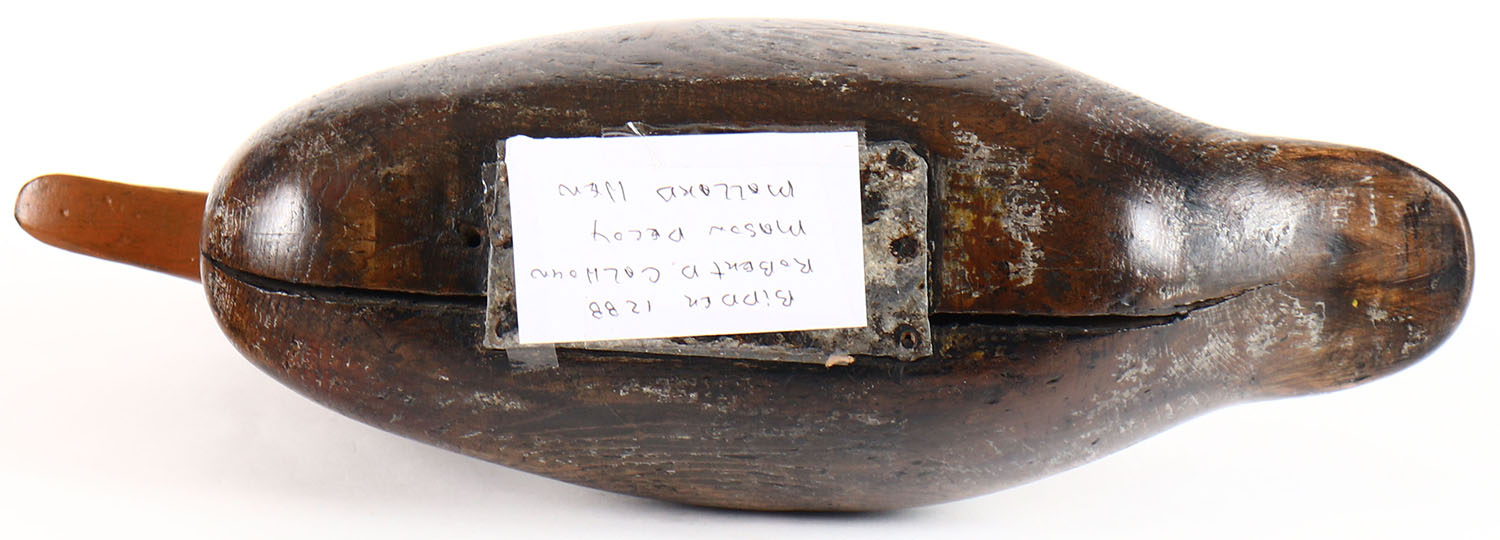 BIDDER 1288
ROBERT D. CALHOUN
MASON DECOY
MALLARD HEN